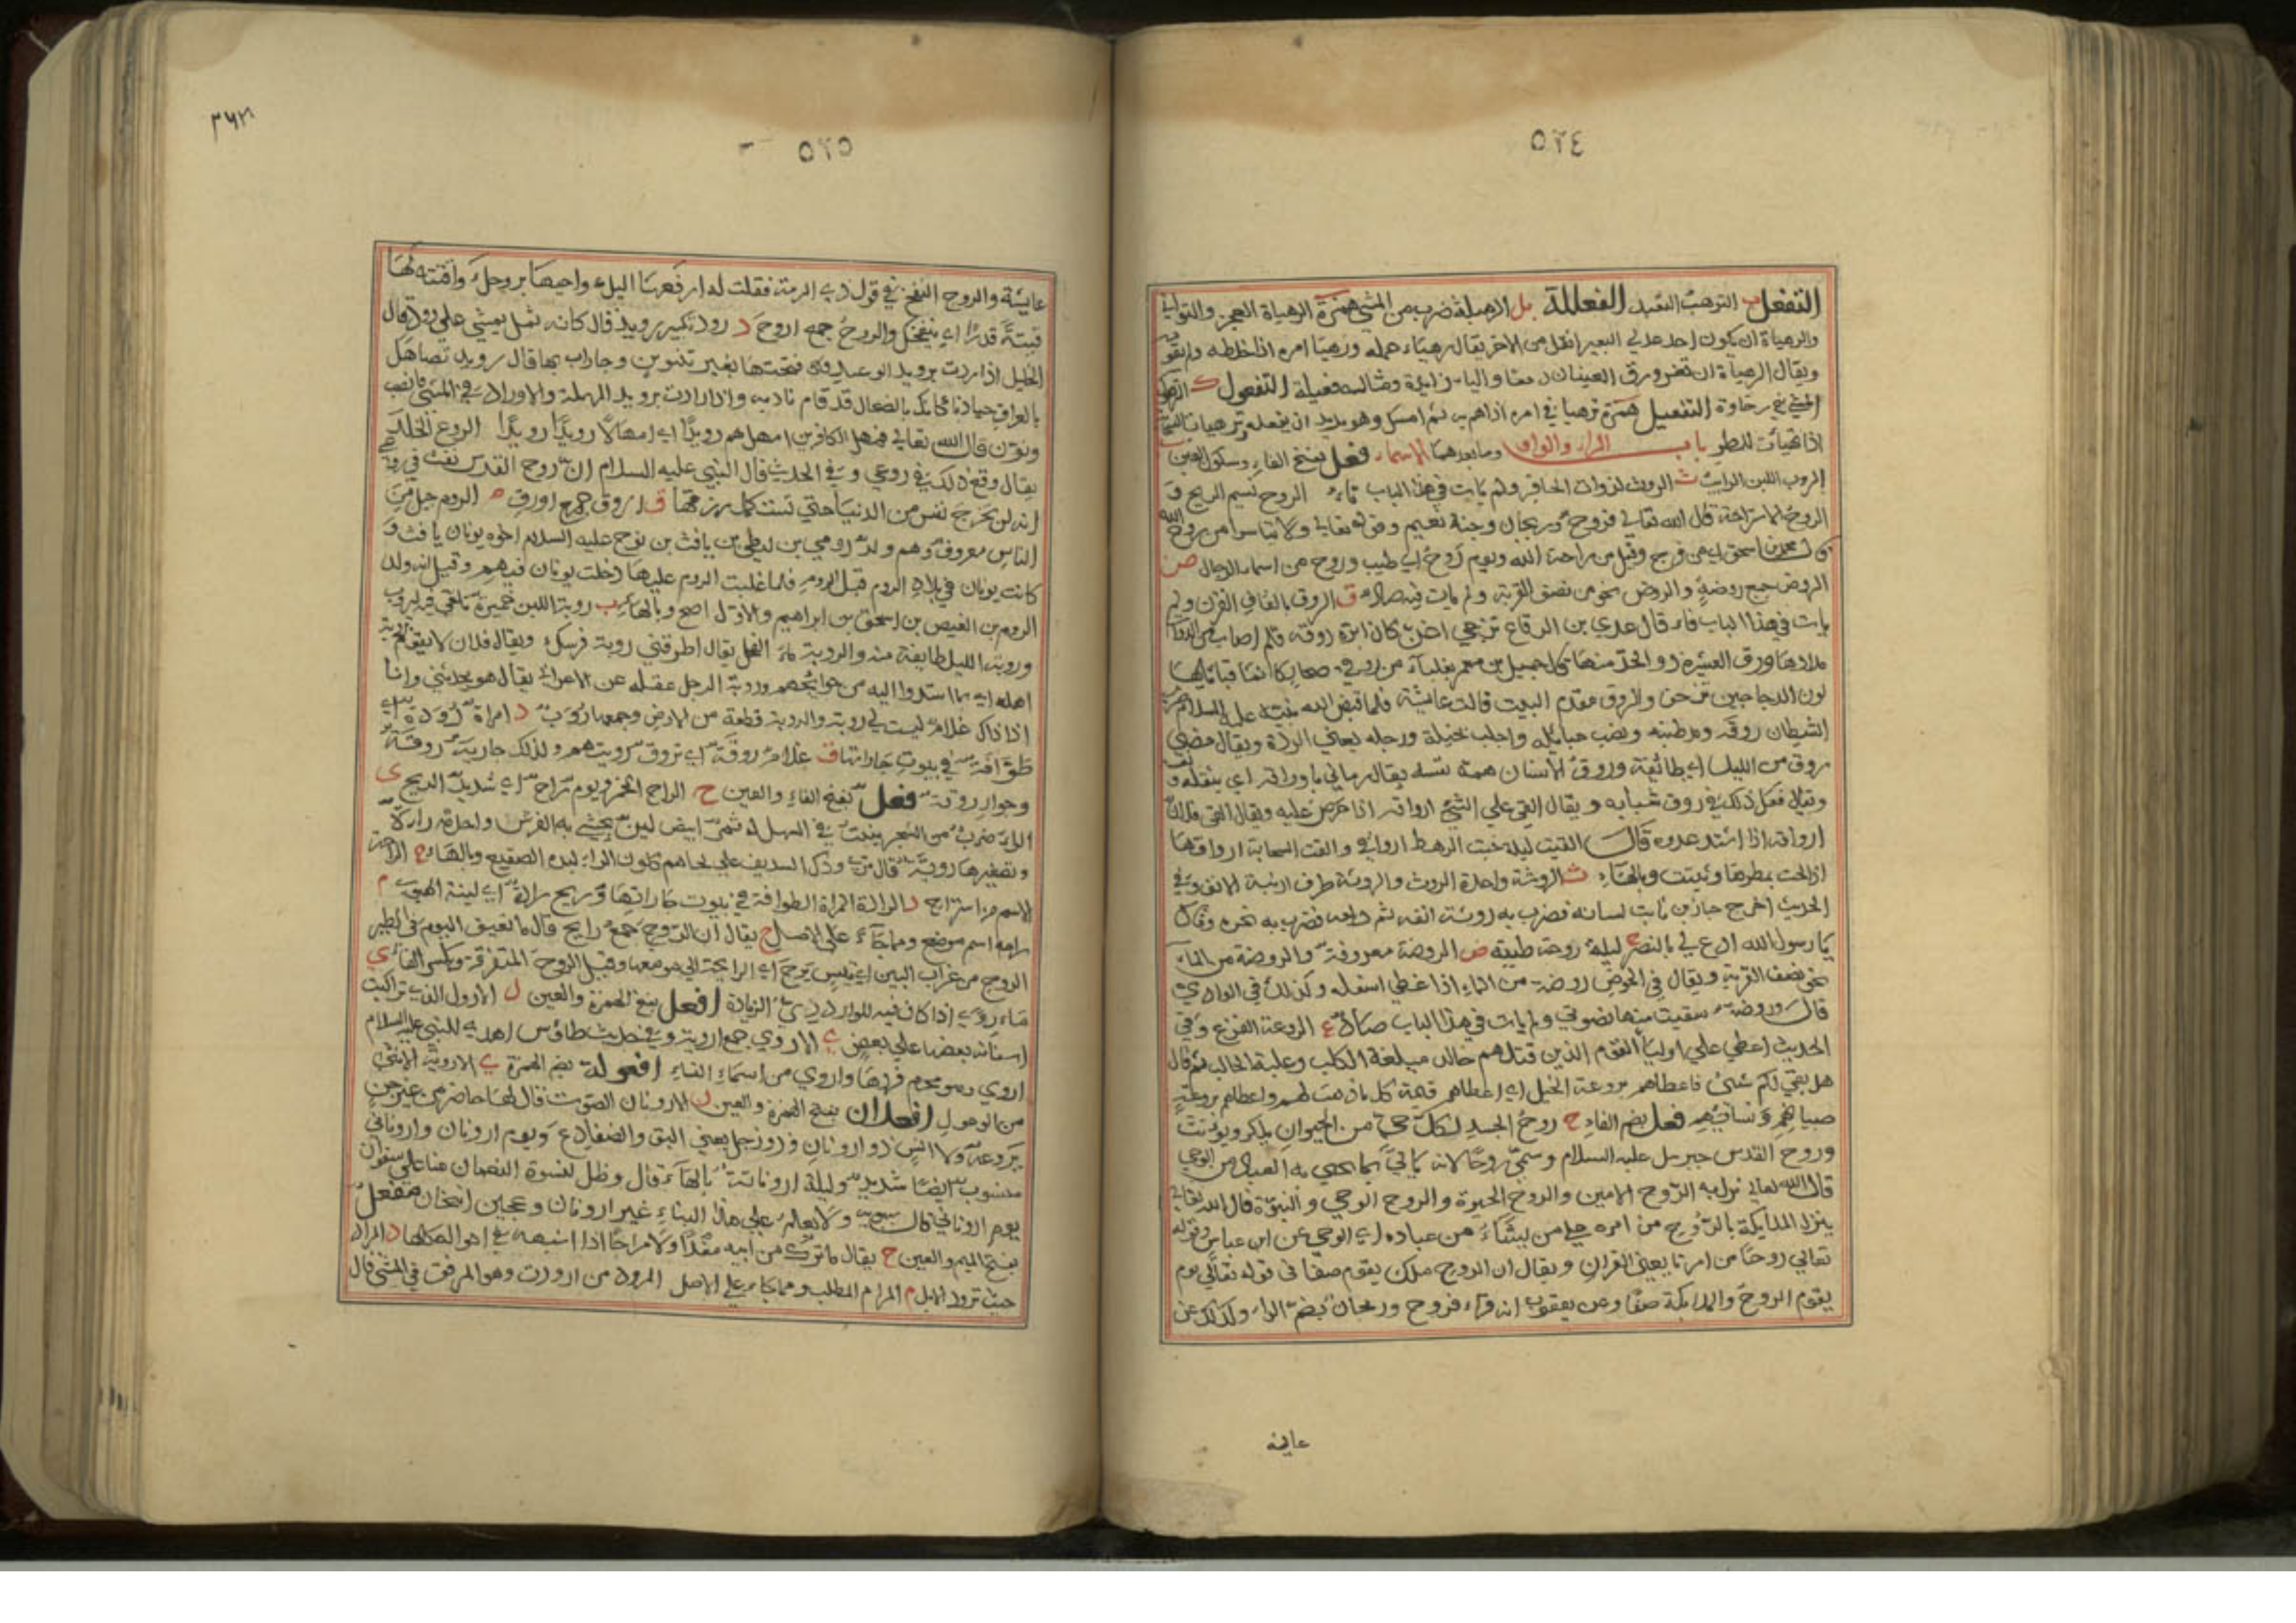 ٥٢٤
التفعل ب الترهب التعبد الفعللة بل الرهبلة ضرب من المشي همزة الرهيأة العجز والتواني
والرهيأة ان يكون احد عدلي البعير اثقل من الاخر يقال رهيأ حمله ورهيأ امره اذا خلطه ولم يقو
ويقال الرهيأة ان تغرورق العينان دمعا والياء زايدة ومثاله فعيلة التفعول ك الترهوك
المشي في رخاوة التفعيل همزة ترهيأ في امره اذا هم به ثم امسك وهو يريد ان يفعله وترهيأت السحابة
اذا تهيأت للمطر باب الراء والواو وما بعدهما الاسماء فعل بفتح الفاء وسكون العين ب
الروب اللبن الرايب ث الروث لذوات الحافر ولم يات في هذا الباب تاء الروح نسيم الريح و
الروح الاستراحة قال الله تعالى فروح وريحان وجنة نعيم وقوله تعالى ولا تياسوا من روح الله
قال محمد بن اسحق اي من فرج وقيل من راحة الله ويوم روح اي طيب وروح من اسماء الرجال ض
الروض جمع روضة والروض نحو من نصف القربة ولم يات فيه صاد ق الروق بالقاف القرن ولم
يات في هذا الباب فاء قال عدي بن الرقاع تزجي اغن كان ابرة روقه قلم اصاب من الدواة
مدادها وروق العشيرة ذو الحد منها قال جميل بن معمر بغلباء من روقي
لون الدجاجين من حق والروق مقدم البيت قالت عائشة فلما قبض الله نبيه عليه السلام ضرب
الشيطان روقه ومد طنبه ونصب حبائله واجلب بخيله ورجله يعني الردة ويقال مضى
روق من الليل اي طائفة وروق الانسان همه نفسه يقال رماني باوراقه اي بثقله
ويقال فعل ذلك في روق شبابه ويقال القى على الشيء ارواقه اذا حرص عليه ويقال القى فلان
ارواقه اذا اشتد عدوه قال القيت ليلة خبت الرهط ارواقي والقت السحابة ارواقها
اذا الحت بمطرها وثبتت وبالهاء ث الروثة واحدة الروث والروثة طرف ارنبة الانف وفي
الحديث اخرج حسان بن ثابت لسانه فضرب به روثة انفه ثم دلعه فضرب به نحره وقال
يا رسول الله ادع لي بالنصر ح ليلة روحة طيبة ض الروضة معروفة والروضة من الماء
نحو نصف القربة ويقال في الحوض روضة من الماء اذا غطى اسفله وكذلك في الوادي
قال وروضة سقيت منها نضوتي ولم يات في هذا الباب صاد ع الروعة الفزع وفي
الحديث اعطى علي اولياء القوم الذين قتلهم خالد ميلغة الكلب وعلبة الحالب ثم قال
هل بقي لكم شيء فاعطاهم بروعة الخيل اي اعطاهم قيمة كل ما ذهب لهم واعطاهم بروعة
صبيانهم ونسائهم فعل بضم الفاء ح روح الجسد لكل حي من الحيوان يذكر ويونث
وروح القدس جبريل عليه السلام وسمي روحا لانه ياتي بما يحيي به العباد من الوحي
قال الله تعالى نزل به الروح الامين والروح الحيوة والروح الوحي والنبوة قال الله تعالى
ينزل الملايكة بالروح من امره على من يشاء من عباده اي الوحي عن ابن عباس وقوله
تعالى روحا من امرنا يعني القران ويقال ان الروح ملك يقوم صفا في قوله تعالى يوم
يقوم الروح والملايكة صفا وعن يعقوب انه قراء فروح وريحان بضم الراء وكذلك عن
عايشة
٣٦٣
٥٢٥
عايشة والروح النفخ في قول ذي الرمة فقلت له ارفعها اليك واحيها بروحك واقتته لها
قيتة قدرا اي بنفخك والروح جمع اروح د رود تكبير رويد قال كانه ثمل يمشي على رود قال
الخليل اذا اردت برويد الوعيد فتحتها بغير تنوين وجازات بها قال رويد تصاهل
بالعراق جيادنا كانك بالضحاك قد قام نادبه واذا اردت برويد المهلة والارواد في المشي فانصب
ونون قال الله تعالى فمهل الكافرين امهلهم رويدا اي امهالا رويدا رويدا الروع الخلد
يقال وقع ذلك في روعي وفي الحديث قال النبي عليه السلام ان روح القدس نفث في روعي
انه لن تخرج نفس من الدنيا حتى تستكمل رزقها ق روق جمع اورق م الروم جيل من
الناس معروف وهم ولد رومي بن لنطي بن يافث بن نوح عليه السلام اخوه يونان يافث و
كانت يونان في بلاد الروم قبل الروم فلما غلبت الروم عليها دخلت يونان فيهم وقيل انه ولد
الروم بن العيص بن اسحق بن ابراهيم والاول اصح وبالهاء ب روبة اللبن خميرة تلقى فيه ليروب
وروبة الليل طايفة منه والروبة ماء الفحل يقال اطرقني روبة فرسك ويقال فلان لا يقوم بروبة
اهله اي بما اسندوا اليه من حوايجهم وروبة الرجل عقله عن ابن الاعرابي يقال هو يحدثني وانا
اذ ذاك غلام ليست لي روبة والروبة قطعة من الارض وجمعها روب د امراة رودة اي
طوافة في بيوت جاراتها ق غلام روقة اي تروق رويتهم وكذلك جارية روقة
وجوار روقة فعل بفتح الفاء والعين ح الراح الخمر ويوم راح اي شديد الريح ي
الراء ضرب من الشجر ينبت في السهل له ثمر ابيض لين يحشى به الفرش واحدته راءة
وتصغيرها رويية قال وذك السديف على لحاهم كلون الراء لبده الصقيع وبالهاء ح الراحة
الاسم من استراح د الرادة المراة الطوافة في بيوت جاراتها وريح رادة اي لينة الهبوب م
رامه اسم موضع ومما جاء على الاصل ح يقال ان الروح جمع رايح قال ما تعيف اليوم في الطير
الروح من غراب البين او تيس برح اي الرايحة الى مواضعها وقيل الروح المتفرقة وبكسر الفاء ي
ماء روى اذا كان فيه للوارد ري الزيادة افعل بفتح الهمزة والعين ل الارول الذي تراكبت
اسنانه بعضها على بعض ي الاروى جمع اروية وفي حديث طاوس اهدي للنبي عليه السلام
اروى وهو محرم فردها واروى من اسماء النساء افعولة بضم الهمزة ي الاروية الانثى
من الوعول افعلان بفتح الهمزة والعين ن الارونان الصوت قال لها حاضر من غير جن
يروعه ولا انس ذو ارونان وذو زجل يعني البق والضفادع ويوم ارونان واروناني
منسوب ايضا شديد وليلة ارونانة بالهاء قال وظل لنسوة النعمان منا على سفوان
يوم اروناني قال سيبويه ولا يعلم على هذا البناء غير ارونان وعجين انبخان مفعل
بفتح الميم والعين ح يقال ما ترك من ابيه مغدا ولا مراحا اذا اشبهه في احواله كلها د المراد
حيث ترود الابل م المرام المطلب ومما جاء على الاصل المرود من ارودت وهو المرفق في المشي قال